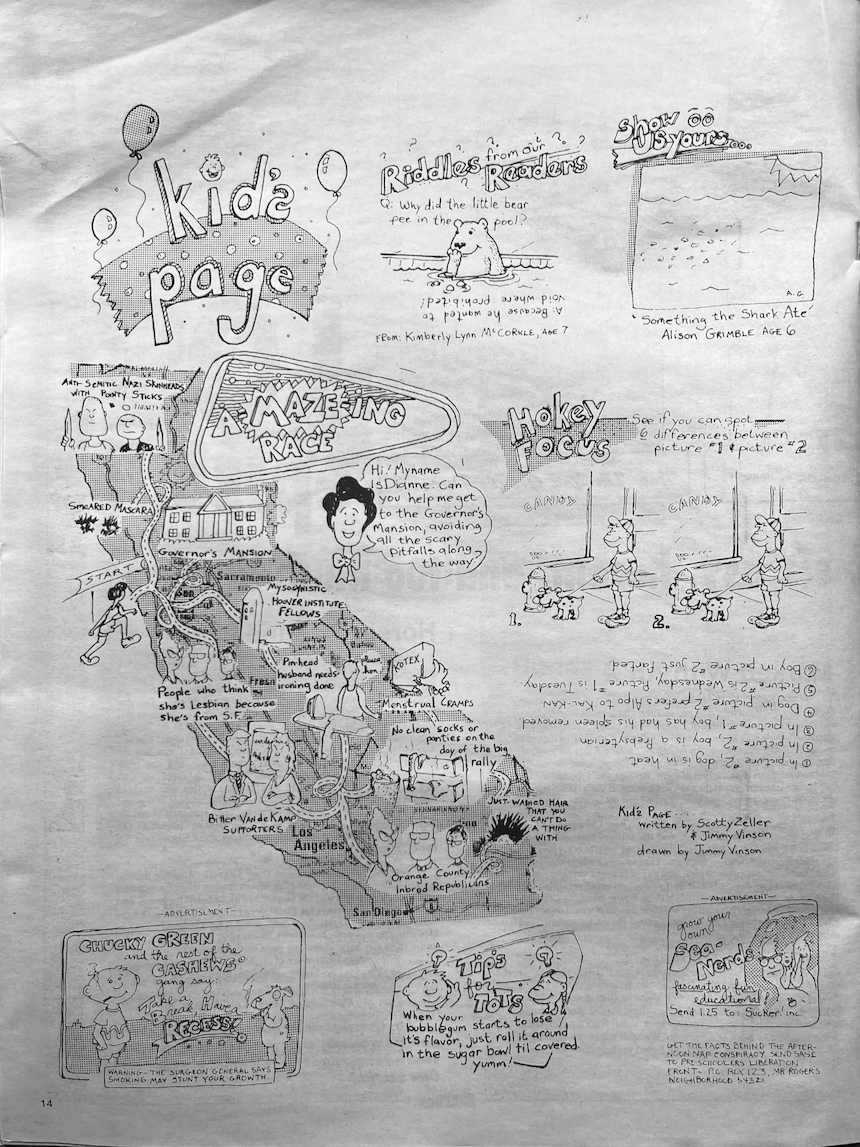 kid's
page
Riddles from our
Readers
Q: Why did the little bear
pee in the pool?
A: Because he wanted to
void where prohibited!
FROM: Kimberly Lynn McCORKLE, AGE 7
Show
US yours...
A.G.
"Something the Shark Ate"
Alison GRIMBLE AGE 6
A-MAZE-ING
RACE
ANTI-SEMITIC NAZI SKINHEADS
WITH POINTY STICKS
SMEARED MASCARA
GOVERNOR'S MANSION
START
Hi! My name
is Dianne. Can
you help me get
to the Governor's
Mansion, avoiding
all the scary
pitfalls along
the way?
Sacramento
MYSOGYNISTIC
HOOVER INSTITUTE
FELLOWS
People who think
she's Lesbian because
she's from S.F.
Pin-head
husband needs
ironing done
KOTEX
Menstrual CRAMPS
No clean socks or
panties on the
day of the big
rally
Bitter Van de Kamp
SUPPORTERS
Los
Angeles
JUST-WASHED HAIR
THAT YOU
CAN'T DO
A THING
WITH
Orange County
Inbred Republicans
San Diego
HOKEY
FOCUS
See if you can spot
6 differences between
picture #1 & picture #2
CANDY
CANDY
1.
2.
① In picture #2, dog is in heat.
② In picture #2, boy is a Presbyterian
③ In picture #1, boy has had his spleen removed.
④ Dog in picture #2 prefers Alpo to Kal-Kan
⑤ Picture #2 is Wednesday, Picture #1 is Tuesday
⑥ Boy in picture #2 just farted.
Kid'z PAGE...
written by Scotty Zeller
& Jimmy Vinson
drawn by Jimmy Vinson
—ADVERTISEMENT—
CHUCKY GREEN
and the rest of the
CASHEWS
gang say:
Take a
Break Have a
RECESS!
WARNING- THE SURGEON GENERAL SAYS
SMOKING MAY STUNT YOUR GROWTH.
Tips
for
TOTS
When your
bubblegum starts to lose
it's flavor, just roll it around
in the sugar bowl til covered.
yumm!
—ADVERTISEMENT—
grow your
own
Sea-
Nerds
fascinating fun
educational!
Send 1.25 to: Sucker! inc.
GET THE FACTS BEHIND THE AFTER-
NOON NAP CONSPIRACY. SEND SASE
TO PRE-SCHOOLERS LIBERATION
FRONT- P.O. BOX 123, MR ROGERS
NEIGHBORHOOD 54321
14